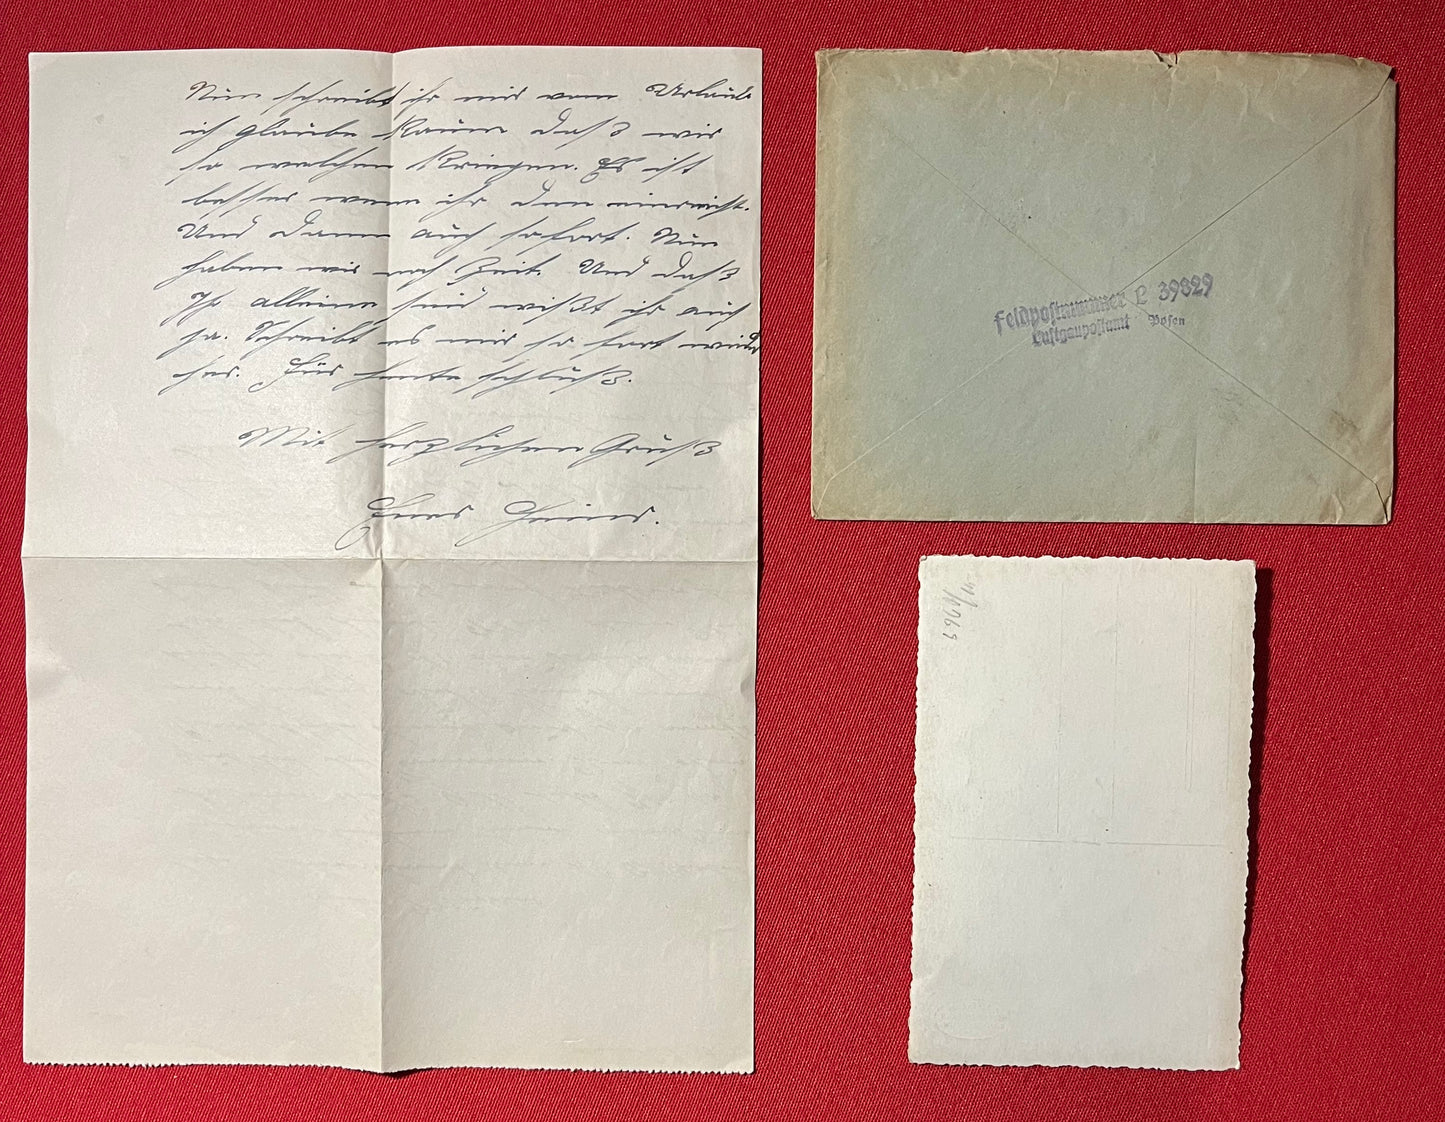 Nun schreibt ihr mir vom Urlaub
ich glaube kaum daß wir
so welchen kriegen. Es ist
besser wenn ihr den einreicht.
Und dann auch sofort. Nun
haben wir noch Zeit. Und daß
Ihr alleine seid wißt ihr auch
ja. Schreibt es mir so fort wieder
her. Für heute schluß.
Mit herzlichen Gruß
Euer
Feldpostnummer L 39829
Luftgaupostamt Posen